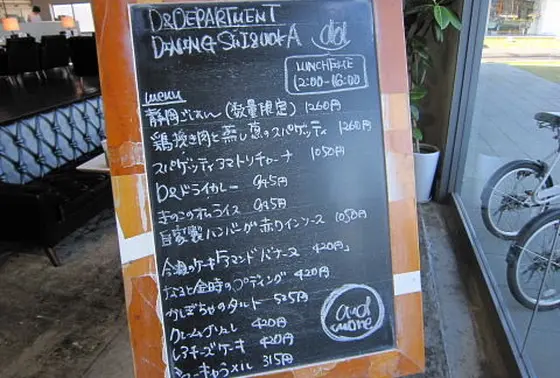 D&DEPARTMENT
DINING SHIZUOKA
d&d
LUNCHTIME
12:00-16:00
menu
静岡ごはん(数量限定) 1260円
鶏挽き肉と蒸し葱のスパゲッティ 1260円
スパゲッティアマトリチャーナ 1050円
D&ドライカレー 945円
きのこのオムライス 945円
自家製ハンバーグ赤ワインソース 1050円
今週のケーキ「アマンドバナーヌ 420円」
なると金時のプディング 420円
かぼちゃのタルト 525円
クレームブリュレ 420円
レアチーズケーキ 420円
シューキャラメル 315円
and more